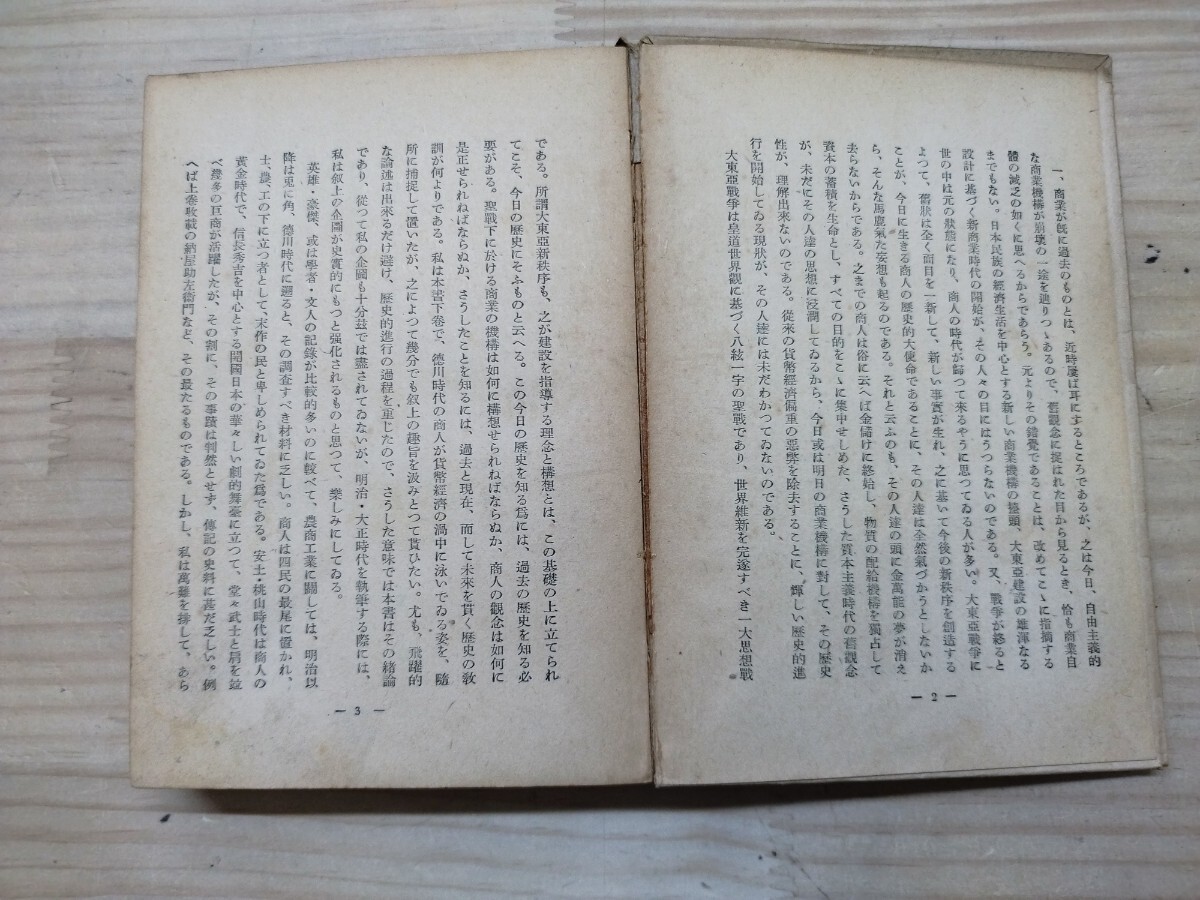 一、商業が既に過去のものとは、近時屡ば耳にするところであるが、之は今日、自由主義的
な商業機構が崩壞の一途を辿りつゝあるので、舊觀念に捉はれた目から見るとき、恰も商業自
體の滅亡の如くに思へるからであらう。元よりその錯覺であることは、改めてこゝに指摘する
までもない。日本民族の經濟生活を中心とする新しい商業機構の擡頭、大東亞建設の雄渾なる
設計に基づく新商業時代の開始が、その人々の目にはうつらないのである。又、戰爭が終ると
世の中は元の狀態になり、商人の時代が歸つて來るやうに思つてゐる人が多い。大東亞戰爭に
よつて、舊狀は全く面目を一新して、新しい事實が生れ、之に基いて今後の新秩序を創造する
ことが、今日に生きる商人の歷史的大使命であることに、その人達は全然氣づかうとしないか
ら、そんな馬鹿氣た妄想も起るのである。それと云ふのも、その人達の頭に金萬能の夢が消え
去らないからである。之までの商人は俗に云へば金儲けに終始し、物質の配給機構を獨占して
資本の蓄積を生命とし、すべての日的をこゝに集中せしめた、さうした資本主義時代の舊觀念
が、未だにその人達の思想に浸潤してゐるから、今日或は明日の商業機構に對して、その歷史
性が、理解出來ないのである。從來の貨幣經濟偏重の惡弊を除去することに、輝しい歷史的進
行を開始してゐる現狀が、その人達には未だわかつてゐないのである。
大東亞戰爭は皇道世界觀に基づく八紘一宇の聖戰であり、世界維新を完遂すべき一大思想戰
— 2 —
である。所謂大東亞新秩序も、之が建設を指導する理念と構想とは、この基礎の上に立てられ
てこそ、今日の歷史にそふものと云へる。この今日の歷史を知る爲には、過去の歷史を知る必
要がある。聖戰下に於ける商業の機構は如何に構想せられねばならぬか、商人の觀念は如何に
是正せられねばならぬか、さうしたことを知るには、過去と現在、而して未來を貫く歷史の敎
訓が何よりである。私は本書下卷で、德川時代の商人が貨幣經濟の渦中に泳いでゐる姿を、隨
所に捕捉して置いたが、之によつて幾分でも叙上の趣旨を汲みとつて貰ひたい。尤も、飛躍的
な論述は出來るだけ避け、歷史的進行の過程を重じたので、さうした意味では本書はその緖論
であり、從つて私の企圖も十分玆では盡されてゐないが、明治・大正時代を執筆する際には、
私は叙上の企圖が史實的にもつと强化されるものと思つて、樂しみにしてゐる。
英雄・豪傑、或は學者・文人の記錄が比較的多いのに較べて、農商工業に關しては、明治以
降は兎に角、德川時代に遡ると、その調査すべき材料に乏しい。商人は四民の最尾に置かれ、
士、農、工の下に立つ者として、末作の民と卑しめられてゐた爲である。安土・桃山時代は商人の
黃金時代で、信長秀吉を中心とする開國日本の華々しい劇的舞臺に立つて、堂々武士と肩を竝
べ、幾多の巨商が活躍したが、その割に、その事蹟は判然とせず、傳記の史料に甚だ乏しい。例
へば上卷收載の納屋助左衞門など、その最たるものである。しかし、私は萬難を排して、あら
— 3 —